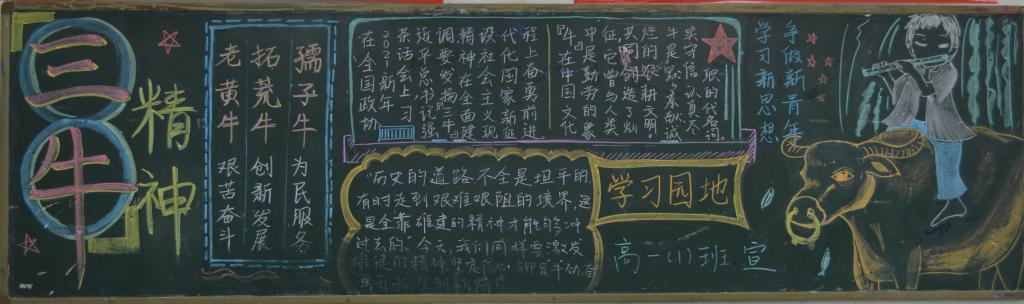 三牛
精神
孺子牛 为民服务
拓荒牛 创新发展
老黄牛 艰苦奋斗
在全国政协
2021新年
茶话会上习
近平总书记强
调要发扬"三牛"
精神在全面建
设社会主义现
代化国家新征
程上奋勇前进
"牛"在中国文化
中是勤劳的象
征,它曾与人类
共同创造了灿
烂的农耕文明
牛是默默奉献诚
实守信认真尽
职的代名词
"历史的道路不全是坦平的
有时走到艰难险阻的境界,这
是全靠雄健的精神才能够冲
过去的"今天,我们同样要激发
雄健的精神坚定信心
学习园地
高一(1)班 宣
争做新青年
学习新思想